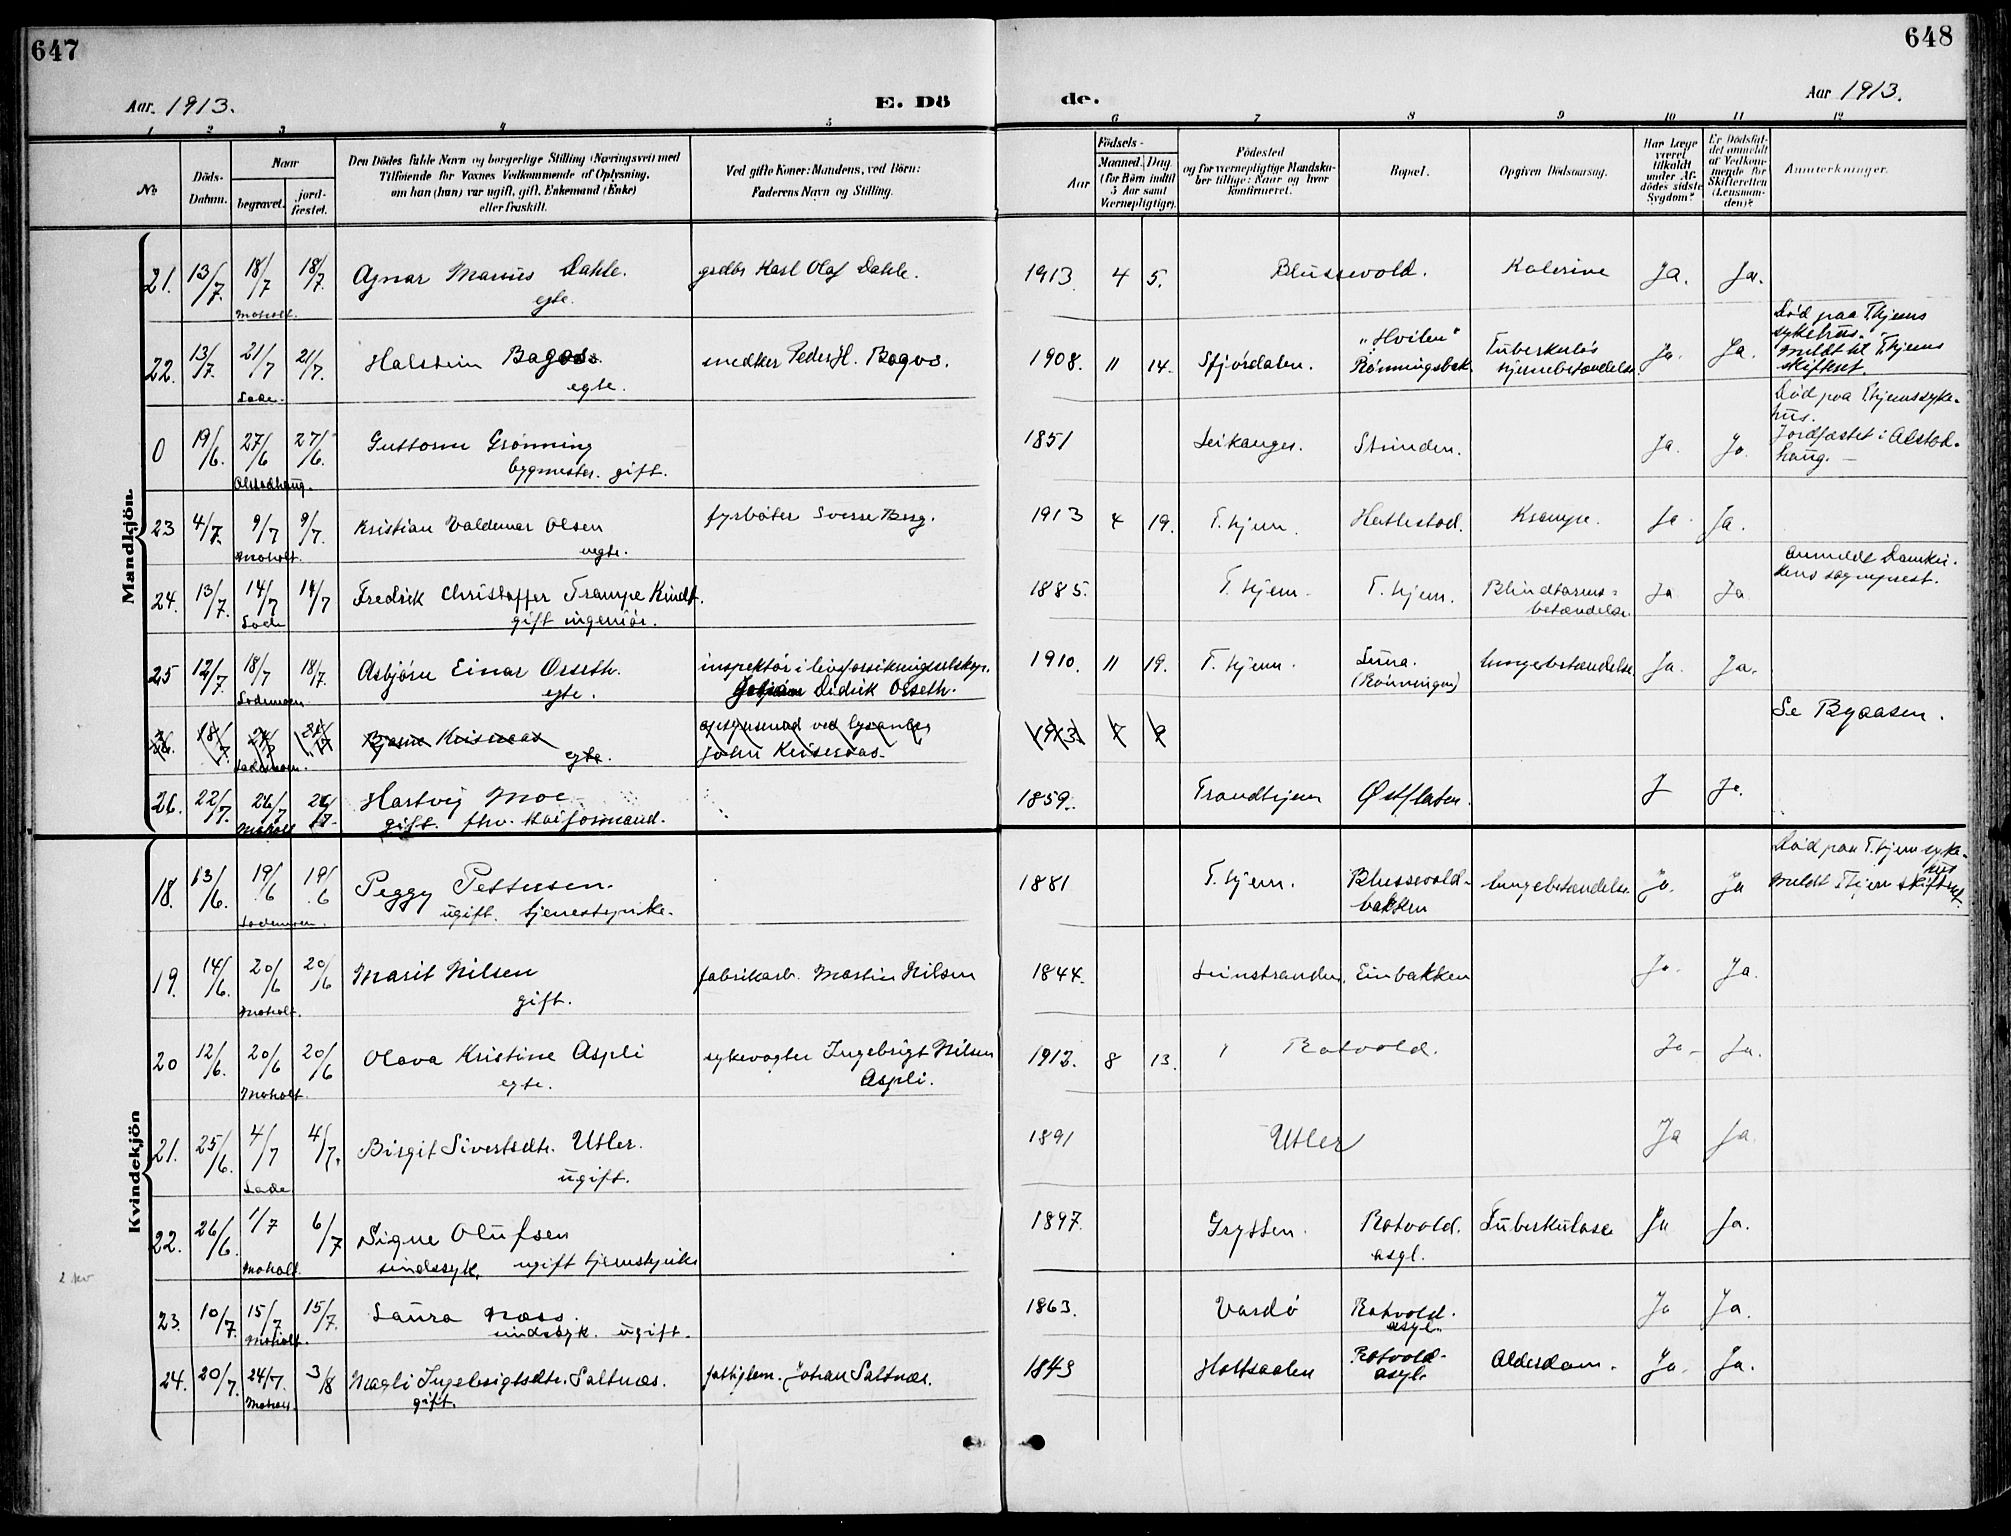 647
648
Aar. 1913.
E. Dö
de.
Aar 1913.
1 2 3 4 5 6 7 8 9 10 11 12
No
Döds-
Datum.
Naar
begravet.
jord-
fæstet.
Den Dödes fulde Navn og borgerlige Stilling (Næringsvei) med
Tilföiende for Voxnes Vedkommende af Oplysning,
om han (hun) var ugift, gift, Enkemand (Enke)
eller fraskilt.
Ved gifte Koner: Mandens, ved Börn:
Faderens Navn og Stilling.
Födsels-
Aar
Maaned. Dag.
(for Börn indtil
5 Aar samt
Værnepligtige).
Födested
og for værnepligtige Mandska-
ber tillige: Naar og hvor
konfirmeret.
Bopæl.
Opgiven Dödsaarsag.
Har Læge
været
tilkaldt
under Af-
dödes sidste
Sygdom?
Er Dödsfal-
det anmeldt
af Vedkom-
mende for
Skifteretten
(Lensman-
den)?
Anmærkninger.
Mandkjön.
21. 13/7. 18/7 18/7. Agnar Marius Dahle. grdbr Karl Olaf Dahle. 1913. 4 5. Blussevold. Kolerine Ja. Ja.
Moholt. egte.
Død paa T.hjems
sykehus.
22. 13/7. 21/7 21/7. Halstein Bagøs. snedker Peder H. Bagøs. 1908. 11 14. Stjørdalen. "Hvilen" Rønningsbak. Tuberkuløs hjernebetændelse Ja. Ja. Meldt til T.hjems
skifteret.
Lade. egte.
Død paa T.hjems syke-
hus.
0 19/6. 27/6 27/6. Guttorm Grønning 1851 Leikanger. Strinden. Ja. Ja. Jordfæstet i Alstad-
haug. —
Alstadhaug. bygmester. gift.
23 4/7. 9/7 9/7. Kristian Valdemar Olsen fyrbøter Sverre Berg. 1913 4 19. T.hjem. Hallestad. Krampe. Ja. Ja.
Moholt. uegte.
24. 13/7. 14/7 14/7 Fredrik Christopher Trampe Kindt. 1885. T.hjem. T.hjem. Blindtarms- betændelse. Ja Ja anmeldt Domkir-
kens sogneprest.
Lade gift ingeniør.
25 12/7. 18/7 18/7. Asbjørn Einar Osseth. inspektør i livsforsikringsselskap. 1910. 11 19. T.hjem. Luna. (Rønningen) lungebetændelse Ja. Ja.
Lademoen egte. Didrik Osseth.
26. 18/7 Bjarne egte. John 1913. 7 Se Byaasen.
Lademoen.
26. 22/7. 26/7 26/7 Hartvig Moe 1859. Trondhjem Østflaten. J Ja.
Moholt gift. fhv. kaiformand.
Kvindekjön
18. 13/6. 19/6 19/6 Peggy Pettersen. 1881 T.hjem. Blussevold- bakken lungebetændelse. Ja. Ja Død paa T.hjem syke-
hus
Meldt T.hjem skifteret.
Lademoen. ugift. tjenestepike.
19. 14/6. 20/6 20/6 Marit Nilsen fabrikarb. Martin Nilsen 1844. Leinstranden. Einbakken Ja. Ja.
Moholt. gift.
20 12/6. 20/6 20/6 Olava Kristine Aspli sykevogter Ingebrigt Nilsen 1912. 8 13. Rotvold. Ja. Ja.
Moholt. egte. Aspli.
21. 25/6. 4/7 4/7. Birgit Sivertsdtr. Utler. 1891 Utler Ja Ja.
Lade ugift.
22. 26/6. 1/7 6/7 Signe Olufsen 1897. Grytten. Rotvold. asyl. Tuberkulose Ja Ja.
Moholt. sindssyk, ugift tjenestepike
2 kv
23. 10/7. 15/7 15/7. Laura Næss. 1863. Vardø Rotvold. asyl. Ja Ja.
Moholt. sindssyk. ugift.
24. 20/7. 24/7. 3/8 Magli Ingebrigtsdtr. Saltnæs. fattiglem. Johan Saltnæs. 1843 Holtsaalen Rotvold. asyl. Alderdom. Ja. Ja.
Moholt. gift.